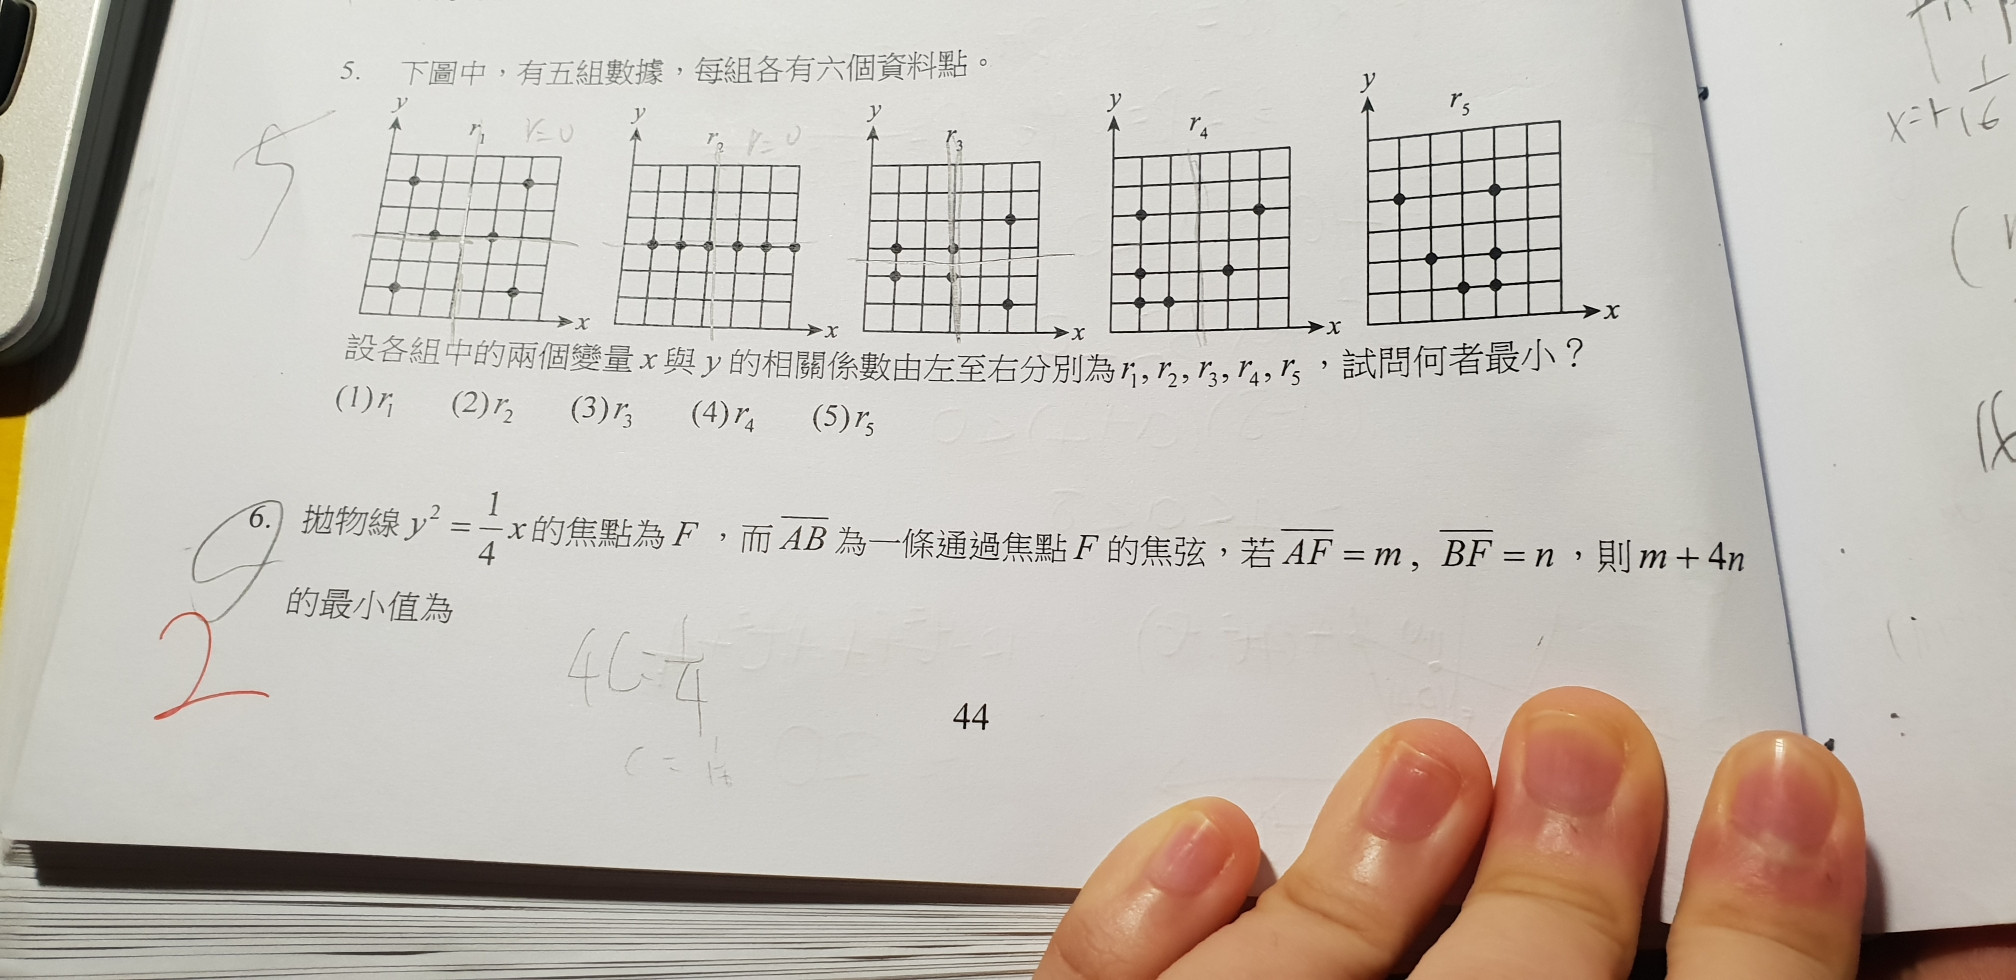 5. 下圖中，有五組數據，每組各有六個資料點。
y r₁ r=0 y r₂ r=0 y r₃ y r₄ y r₅
x x x x x
設各組中的兩個變量 x 與 y 的相關係數由左至右分別為 r₁, r₂, r₃, r₄, r₅ ，試問何者最小？
(1) r₁ (2) r₂ (3) r₃ (4) r₄ (5) r₅
5
6. 拋物線 y² = 1/4 x 的焦點為 F ，而 AB 為一條通過焦點 F 的焦弦，若 AF = m , BF = n ，則 m + 4n
的最小值為
2
4c=1/4
44